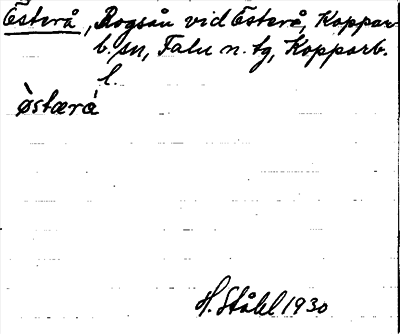 Österå, Rogsån vid Österå, Koppar-
b. sn, Falu n. tg, Kopparb.
l.
òstærá
H. Ståhl 1930